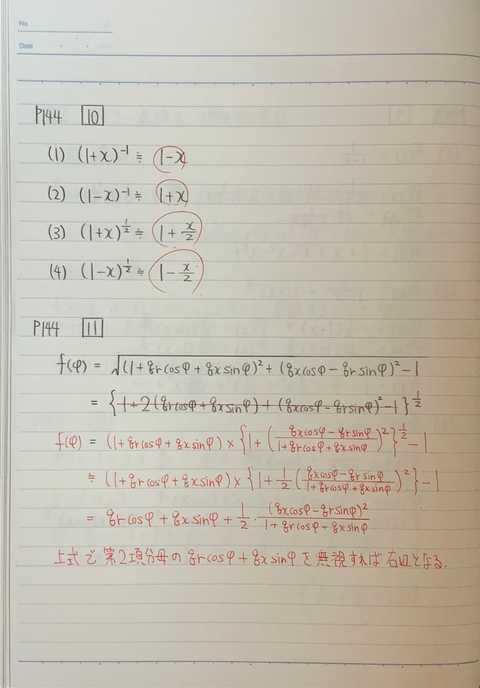 No.
Date
P144 10
(1) (1+x)^-1 ≒ 1-x
(2) (1-x)^-1 ≒ 1+x
(3) (1+x)^1/2 ≒ 1+x/2
(4) (1-x)^1/2 ≒ 1-x/2
P144 11
f(φ) = √(1+qr cosφ + qx sinφ)² + (qx cosφ - qr sinφ)² - 1
= {1+2(qr cosφ + qx sinφ) + (qx cosφ - qr sinφ)² - 1}^1/2
f(φ) = (1+qr cosφ + qx sinφ) × {1+((qx cosφ - qr sinφ)/(1+qr cosφ + qx sinφ))²}^1/2 - 1
≒ (1+qr cosφ + qx sinφ) × {1+1/2((qx cosφ - qr sinφ)/(1+qr cosφ + qx sinφ))²} - 1
= qr cosφ + qx sinφ + 1/2 · (qx cosφ - qr sinφ)²/(1+qr cosφ + qx sinφ)
上式で第2項分母の qr cosφ + qx sinφ を無視すれば右辺となる.